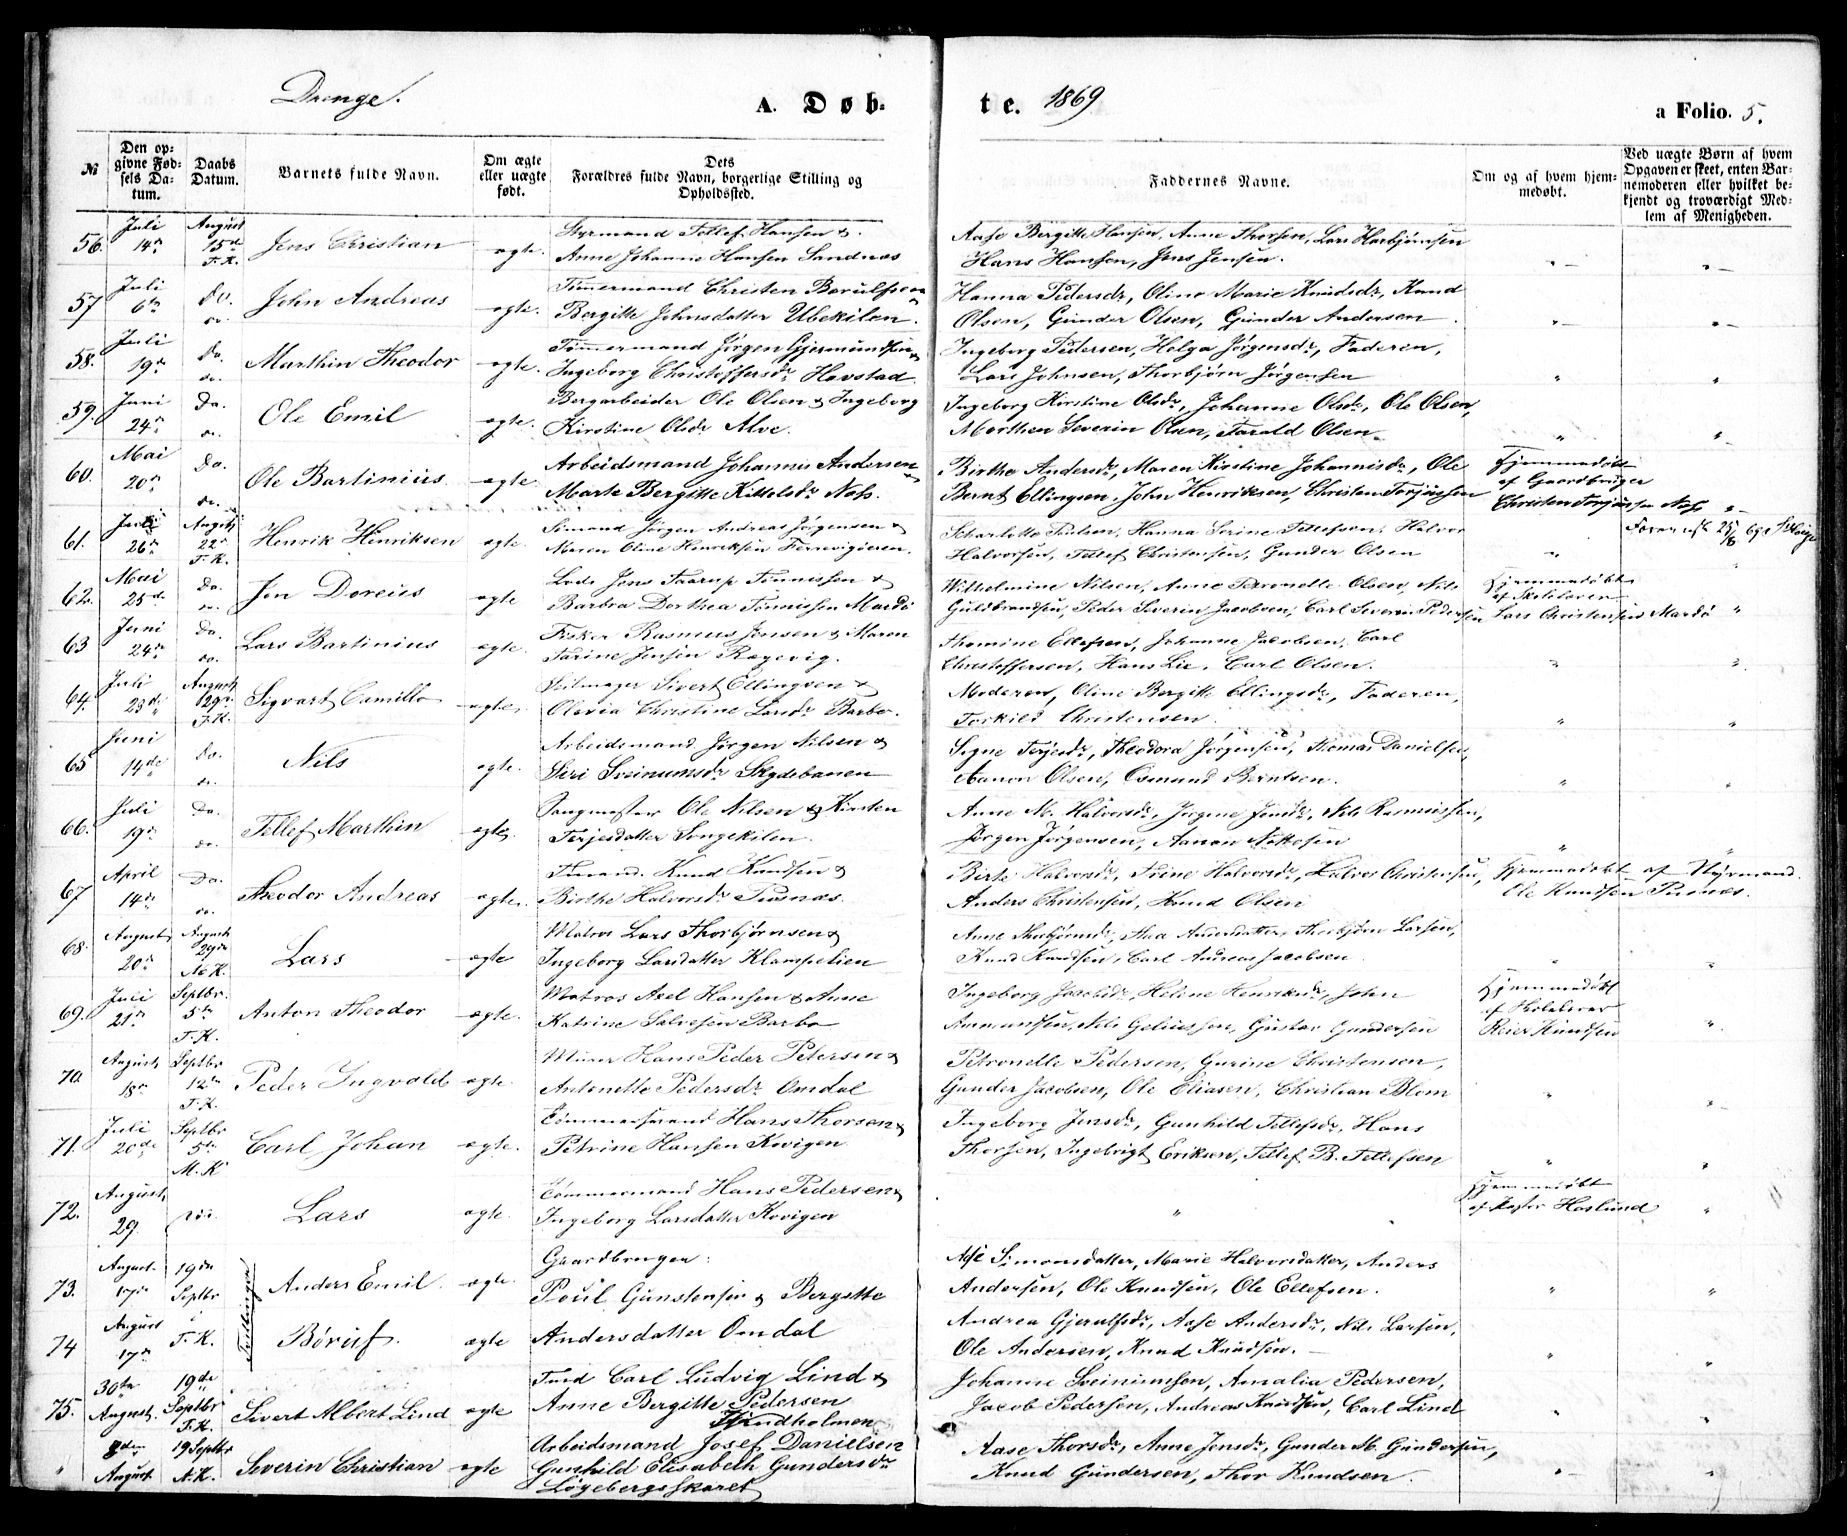 Drenge.
A. Døb-
te. 1869
a Folio. 5.
№
Den op-
givne Fød-
sels Da-
tum.
Daabs
Datum.
Barnets fulde Navn.
Om ægte
eller uægte
født.
Dets
Forældres fulde Navn, borgerlige Stilling og
Opholdssted.
Faddernes Navne.
Om og af hvem hjem-
medøbt.
Ved uægte Børn af hvem
Opgaven er skeet, enten Bar-
nemoderen eller hvilket be-
kjendt og troværdigt Med-
lem af Menigheden.
56. Juli 14de August 15de F.K. Jens Christian ægte. Styrmand Tellef Hansen &
Anne Johanne Hansen Sandnæs
Aase Bergitte Hansen, Anne Thorsen, Lars
Hans Hansen, Jens Jensen.
57 Juli 6te Do. do. John Andreas ægte. Tømmermand Christen Børulfsen
Bergitte Johnsdatter Ubekilen.
Hanna Pedersdr, Oline Marie Knudsdr, Knud
Olsen, Gunder Olsen, Gunder Andersen
58. Juli 19de Do. do. Marthin Theodor ægte. Tømmermand Jørgen Gjermundsen
Ingeborg Christoffersdr Havstad
Ingeborg Pedersen, Helga Jørgensdr, Faderen,
Lars Johnsen, Thorbjørn Jørgensen
59. Juni 24de Do. do. Ole Emil ægte. Bergarbeider Ole Olsen & Ingeborg
Kirstine Olsdr Alve.
Ingeborg Kirstine Olsdr, Johanne Olsdr, Ole Olsen,
Morthen Severin Olsen, Tarald Olsen
60. Mai 20de Do. do. Ole Bartinius ægte. Arbeidsmand Johannes Andersen
Marte Bergitte Kittelsdr Næs.
Birthe Andersdr, Maren Kirstine Johannesdr, Ole
Bernt Ellingsen, John Henriksen, Christen Terjussen
Hjemmedøbt
af Gaardbruger
Christen Terjussen Næs
61. Juli 26de Augst 22de F.K. Henrik Henriksen ægte. Sømand Jørgen Andreas Jørgensen &
Maren Oline Henriksen
Scharlotte Poulsen, Hanna Serine Tellefsen, Halvor
Halvorsen, Tellef Christensen, Gunder Olsen
62. Mai 25de Do. do. Jen Doreius ægte Lods Jens Taarup Tønnissen &
Barbra Dorthea Tønnissen Mardø
Wilhelmine Nilsen, Anne Petronelle Olsen, Nils
Guldbrandsen, Peder Severin Jacobsen, Carl Severin Pedersen
Hjemmedøbt
af Skolelærer
Lars Christensen Mardø
63 Juni 24de Do. do. Lars Bartinius ægte. Fisker Rasmus Jensen & Maren
Tarine Jensen Rægevig.
Thomine Ellefsen, Johanne Jacobsen, Carl
Christoffersen, Hans Lie, Carl Olsen.
64. Juli 23de August 29de F.K. Sigvart Camillo ægte. Seilmager Sivert Ellingsen &
Olevia Christine Larsdr Barbo.
Moderen, Oline Bergitte Ellingsdr, Faderen,
Torkild Christensen.
65 Juni 14de Do. do. Nils ægte. Arbeidsmand Jørgen Nilsen &
Siri Sveinumsdr Skydebanen
Signe Terjesdr, Theodora Jørgensen, Thomas Danielsen,
Aanon Olsen, Osmund Berntsen.
66. Juli 19de Do. do. Tellef Marthin ægte. Ole Nilsen & Kirsten
Terjesdatter Songekilen.
Anne M. Halvorsdr, Jørgine Jensdr, Nils Rasmussen,
Jørgen Jørgensen, Aanon
67 April 14de Do. do. Theodor Andreas ægte. Knud Knudsen &
Birthe Halvorsdr
Berte Halvorsdr, Trine Halvorsdr, Halvor Christensen,
Anders Christensen, Knud Olsen
Hjemmedøbt af Styrmand
Ole Knudsen
68. August 20de August 29de N.K. Lars ægte Matros Lars Thorbjørnsen &
Ingeborg Larsdatter Klampelien
Anne Thorbjørnsdr, Thea Andersdatter, Thorbjørn Larsen,
Knud Knudsen, Carl Andreas Jacobsen
69. Juli 21de Septbr. 5te F.K. Anton Theodor ægte. Matros Axel Hansen & Anne
Katrine Salvesen Barbo
Ingeborg Jacobsdr, Heline Henriksdr, John
Gustav Gundersen
Hjemmedøbt
af Skolelærer
Reier Knudsen
70. August 18de Septbr 12te F.K. Peder Ingvald ægte. Murer Hans Peder Petersen &
Antonette Pedersdr Omdal
Petronelle Pedersen, Gurine Christensen,
Gunder Jacobsen, Ole Eliasen, Christian Blom
71. Juli 20de Septbr 5te M.K. Carl Johan ægte. Tømmermand Hans Thorsen &
Petrine Hansen Kovigen
Ingeborg Jensdr, Gunhild Tellefsdr, Hans
Thorsen, Ingebrigt Eriksen, Tellef B. Tellefsen
72. August 29. Lars ægte. Tømmermand Hans Pedersen &
Ingeborg Larsdatter Kovigen
Hjemmedøbt
af Pastor Haslund
73. August 17de 19de Septbr Tvillinger Anders Emil. ægte. Gaardbrugen:
Poul Gunstensen & Bergitte
Aase Simonsdatter, Marie Halvorsdatter, Anders
Andersen, Ole Knudsen, Ole Ellefsen.
74 August 17de F.K. Børuf. ægte Andersdatter Omdal
Andrea Gjerulfsdr, Aase Andersdr, Nils Larsen,
Ole Andersen, Knud Knudsen.
75. 30te August. 19de Septbr F.K. Sivert Albert Lind ægte Carl Ludvig Lind &
Anne Bergitte Pedersen
Johanne Sveinumsen, Amalia Pedersen,
Jacob Pedersen, Andreas Knudsen, Carl Lind
" 8de August 19 Septbr N.K. Severin Christian ægte Arbeidsmand Josef Danielsen
Gunhild Elisabeth Gundersdr
Løgebergsskaret
Aase Thorsdr, Anne Jensdr, Gunder M. Gundersen,
Knud Gundersen, Thor Knudsen.